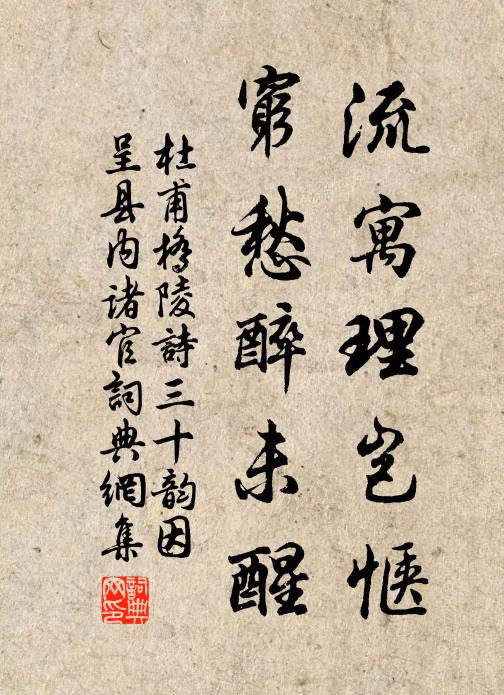 流寓理岂惬
穷愁醉未醒
杜甫橋陵詩三十韵因
呈县内诸官詞典網集
詞典网印